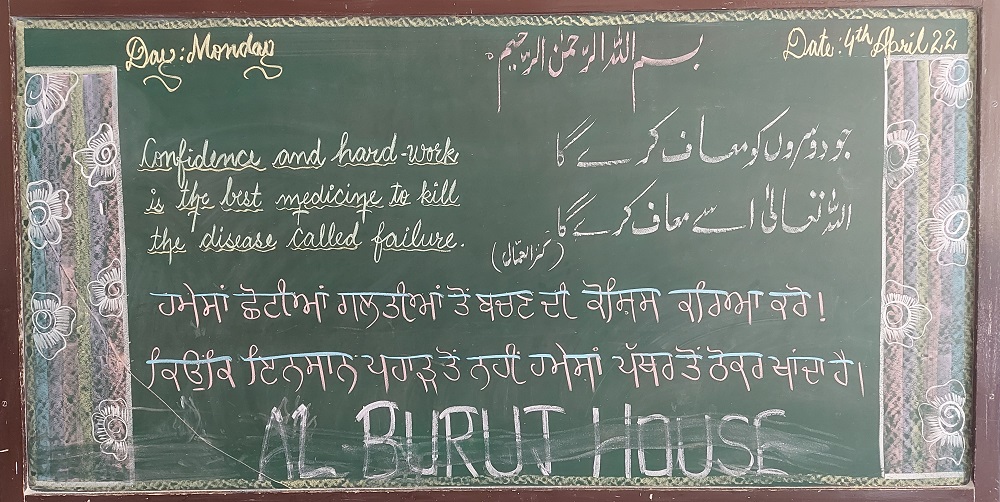 Day: Monday
بسم اللہ الرحمٰن الرحیم
Date: 4th April 22
Confidence and hard-work
is the best medicine to kill
the disease called failure.
جو دوسروں کو معاف کرے گا
اللہ تعالیٰ اسے معاف کرے گا
(کنزالعمال)
ਹਮੇਸਾਂ ਛੋਟੀਆਂ ਗਲਤੀਆਂ ਤੋਂ ਬਚਣ ਦੀ ਕੋਸ਼ਿਸ ਕਰਿਆ ਕਰੋ!
ਕਿਉਂਕਿ ਇਨਸਾਨ ਪਹਾੜ ਤੋਂ ਨਹੀਂ ਹਮੇਸਾਂ ਪੱਥਰ ਤੋਂ ਠੋਕਰ ਖਾਂਦਾ ਹੈ।
AL BURUJ HOUSE